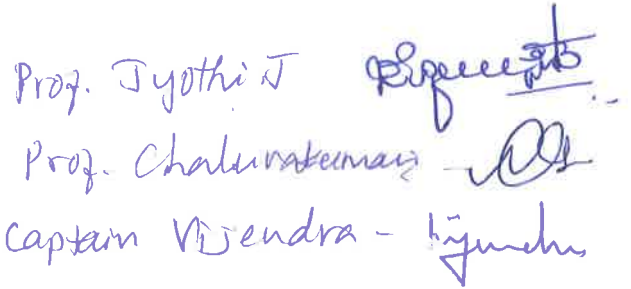 Prof. Jyothi J
Prof. Chaluvakumar -
Captain Vijendra -